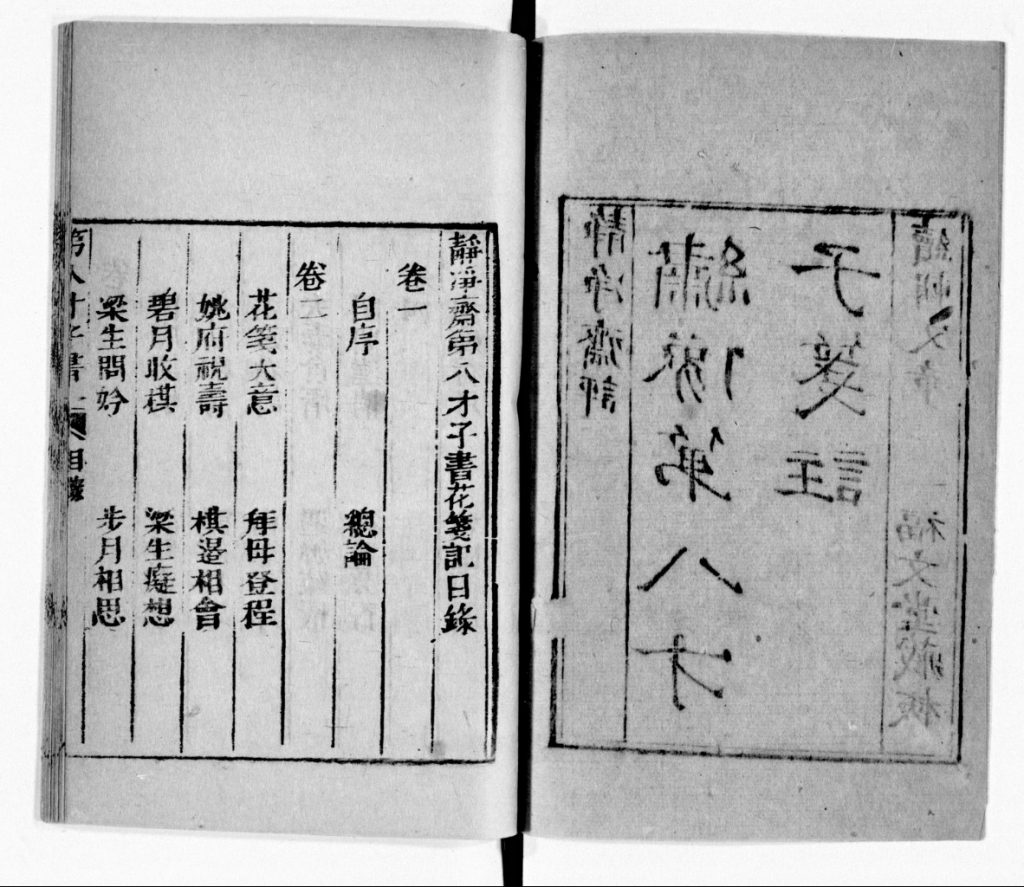 靜淨齋評
繡像第八才
子箋註
福文堂藏板
靜淨齋第八才子書花箋記目錄
卷一
自序 總論
卷二
花箋大意 拜母登程
姚府祝壽 棋邊相會
碧月收棋 梁生癡想
梁生問妗 步月相思
第八才子書 目錄